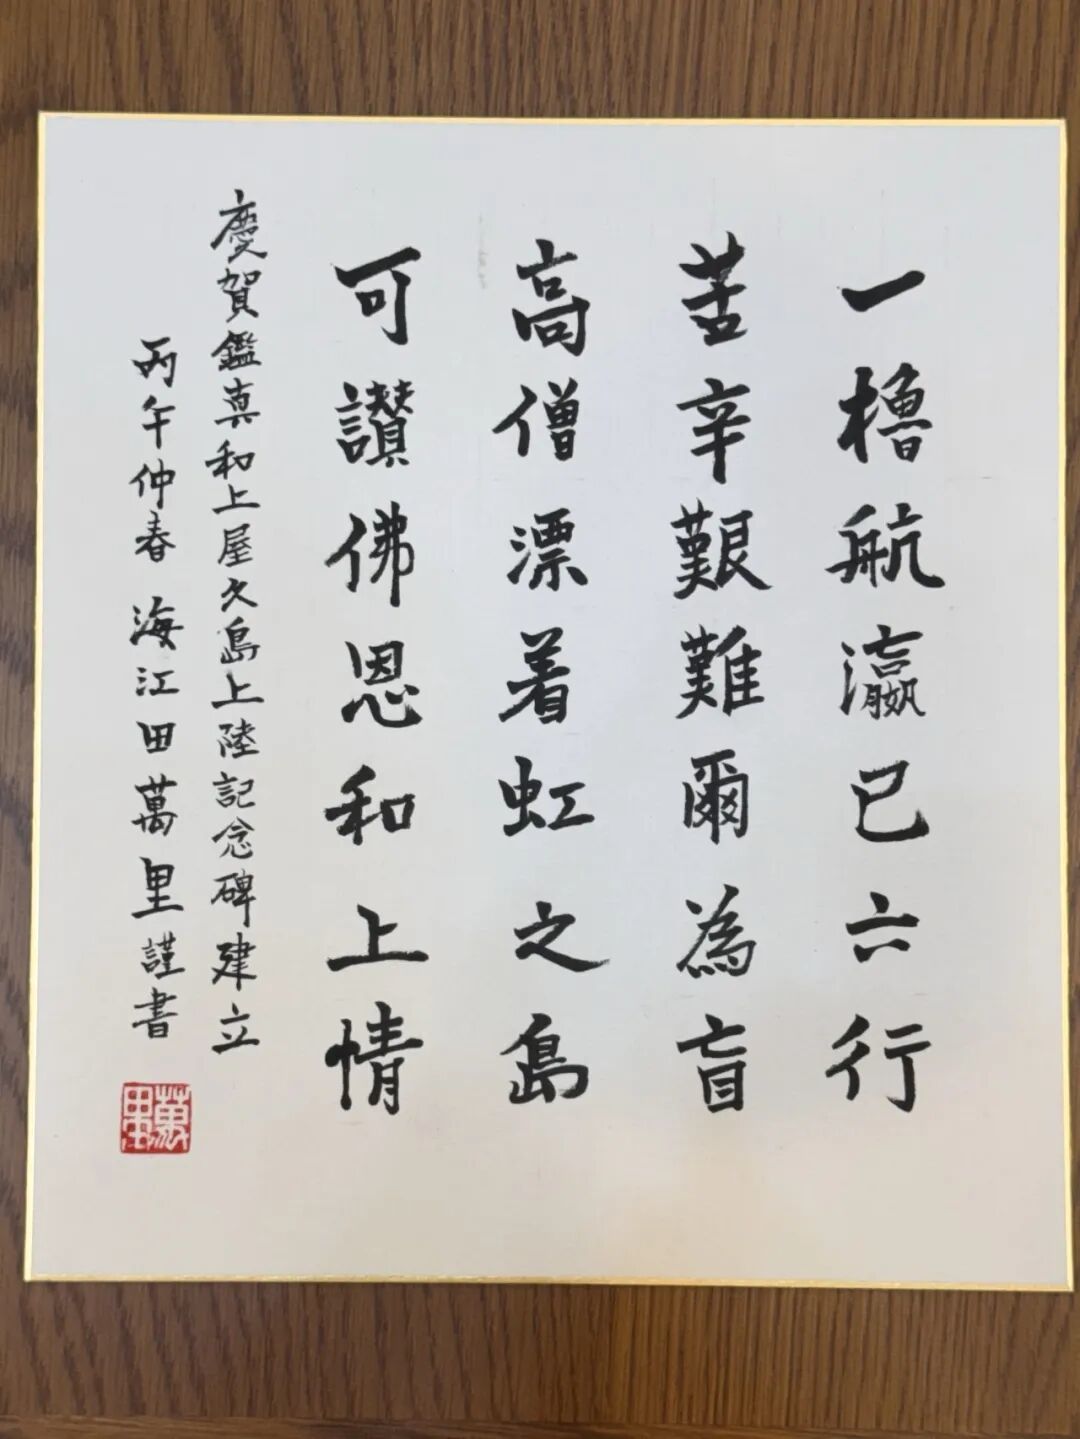 一櫓航瀛已六行
苦辛艱難爾為盲
高僧漂着虹之島
可讃佛恩和上情
慶賀鑑真和上屋久島上陸記念碑建立
丙午仲春 海江田萬里謹書
萬里